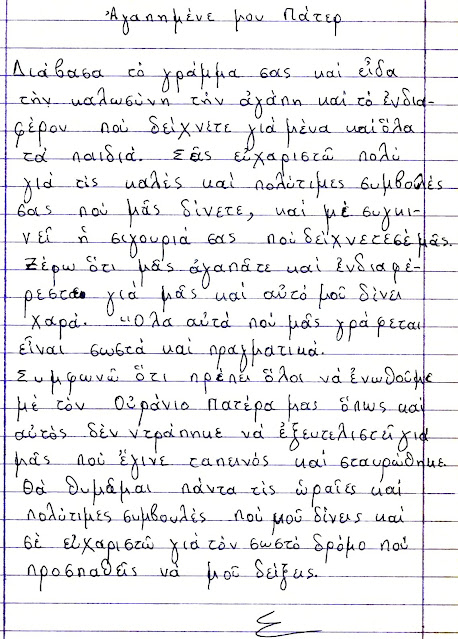 Ἀγαπημένε μου Πάτερ
Διάβασα τό γράμμα σας καί εἶδα
τήν καλωσύνη τήν ἀγάπη καί τό ἐνδια-
φέρον πού δείχνετε γιά μένα καί ὅλα
τά παιδιά. Σᾶς εὐχαριστῶ πολύ
γιά τίς καλές καί πολύτιμες συμβουλές
σας πού μᾶς δίνετε, καί μέ συγκι-
νεῖ ἡ σιγουριά σας πού δείχνετε σέ μᾶς.
Ξέρω ὅτι μᾶς ἀγαπᾶτε καί ἐνδιαφέ-
ρεστε γιά μᾶς καί αὐτό μοῦ δίνει
χαρά. Ὅλα αὐτά πού μᾶς γράφεται
εἶναι σωστά καί πραγματικά.
Συμφωνῶ ὅτι πρέπει ὅλοι νά ἑνωθοῦμε
μέ τόν Οὐράνιο Πατέρα μας ὅπως καί
αὐτός δέν ντράπηκε νά ἐξευτελιστεῖ γιά
μᾶς πού ἔγινε ταπεινός καί σταυρώθηκε
Θά θυμᾶμαι πάντα τίς ὡραῖες καί
πολύτιμες συμβουλές πού μοῦ δίνεις καί
σέ εὐχαριστῶ γιά τόν σωστό δρόμο πού
προσπαθεῖς νά μοῦ δείξεις.
Σ